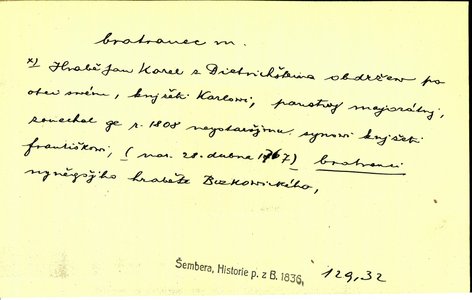 bratranec m.
x) Hrabě Jan Karel z Dietrichšteina obdržew po
otci swém, knjžeti Karlowi, panstwj majorátnj,
zanechal ge r. 1808 neystaršjmu synowi knjžeti
Františkowi, (nar. 28. dubna 1767) bratranci
nyněgšjho hraběte Buzkowického,
Šembera, Historie p. z B. 1836,
129,32